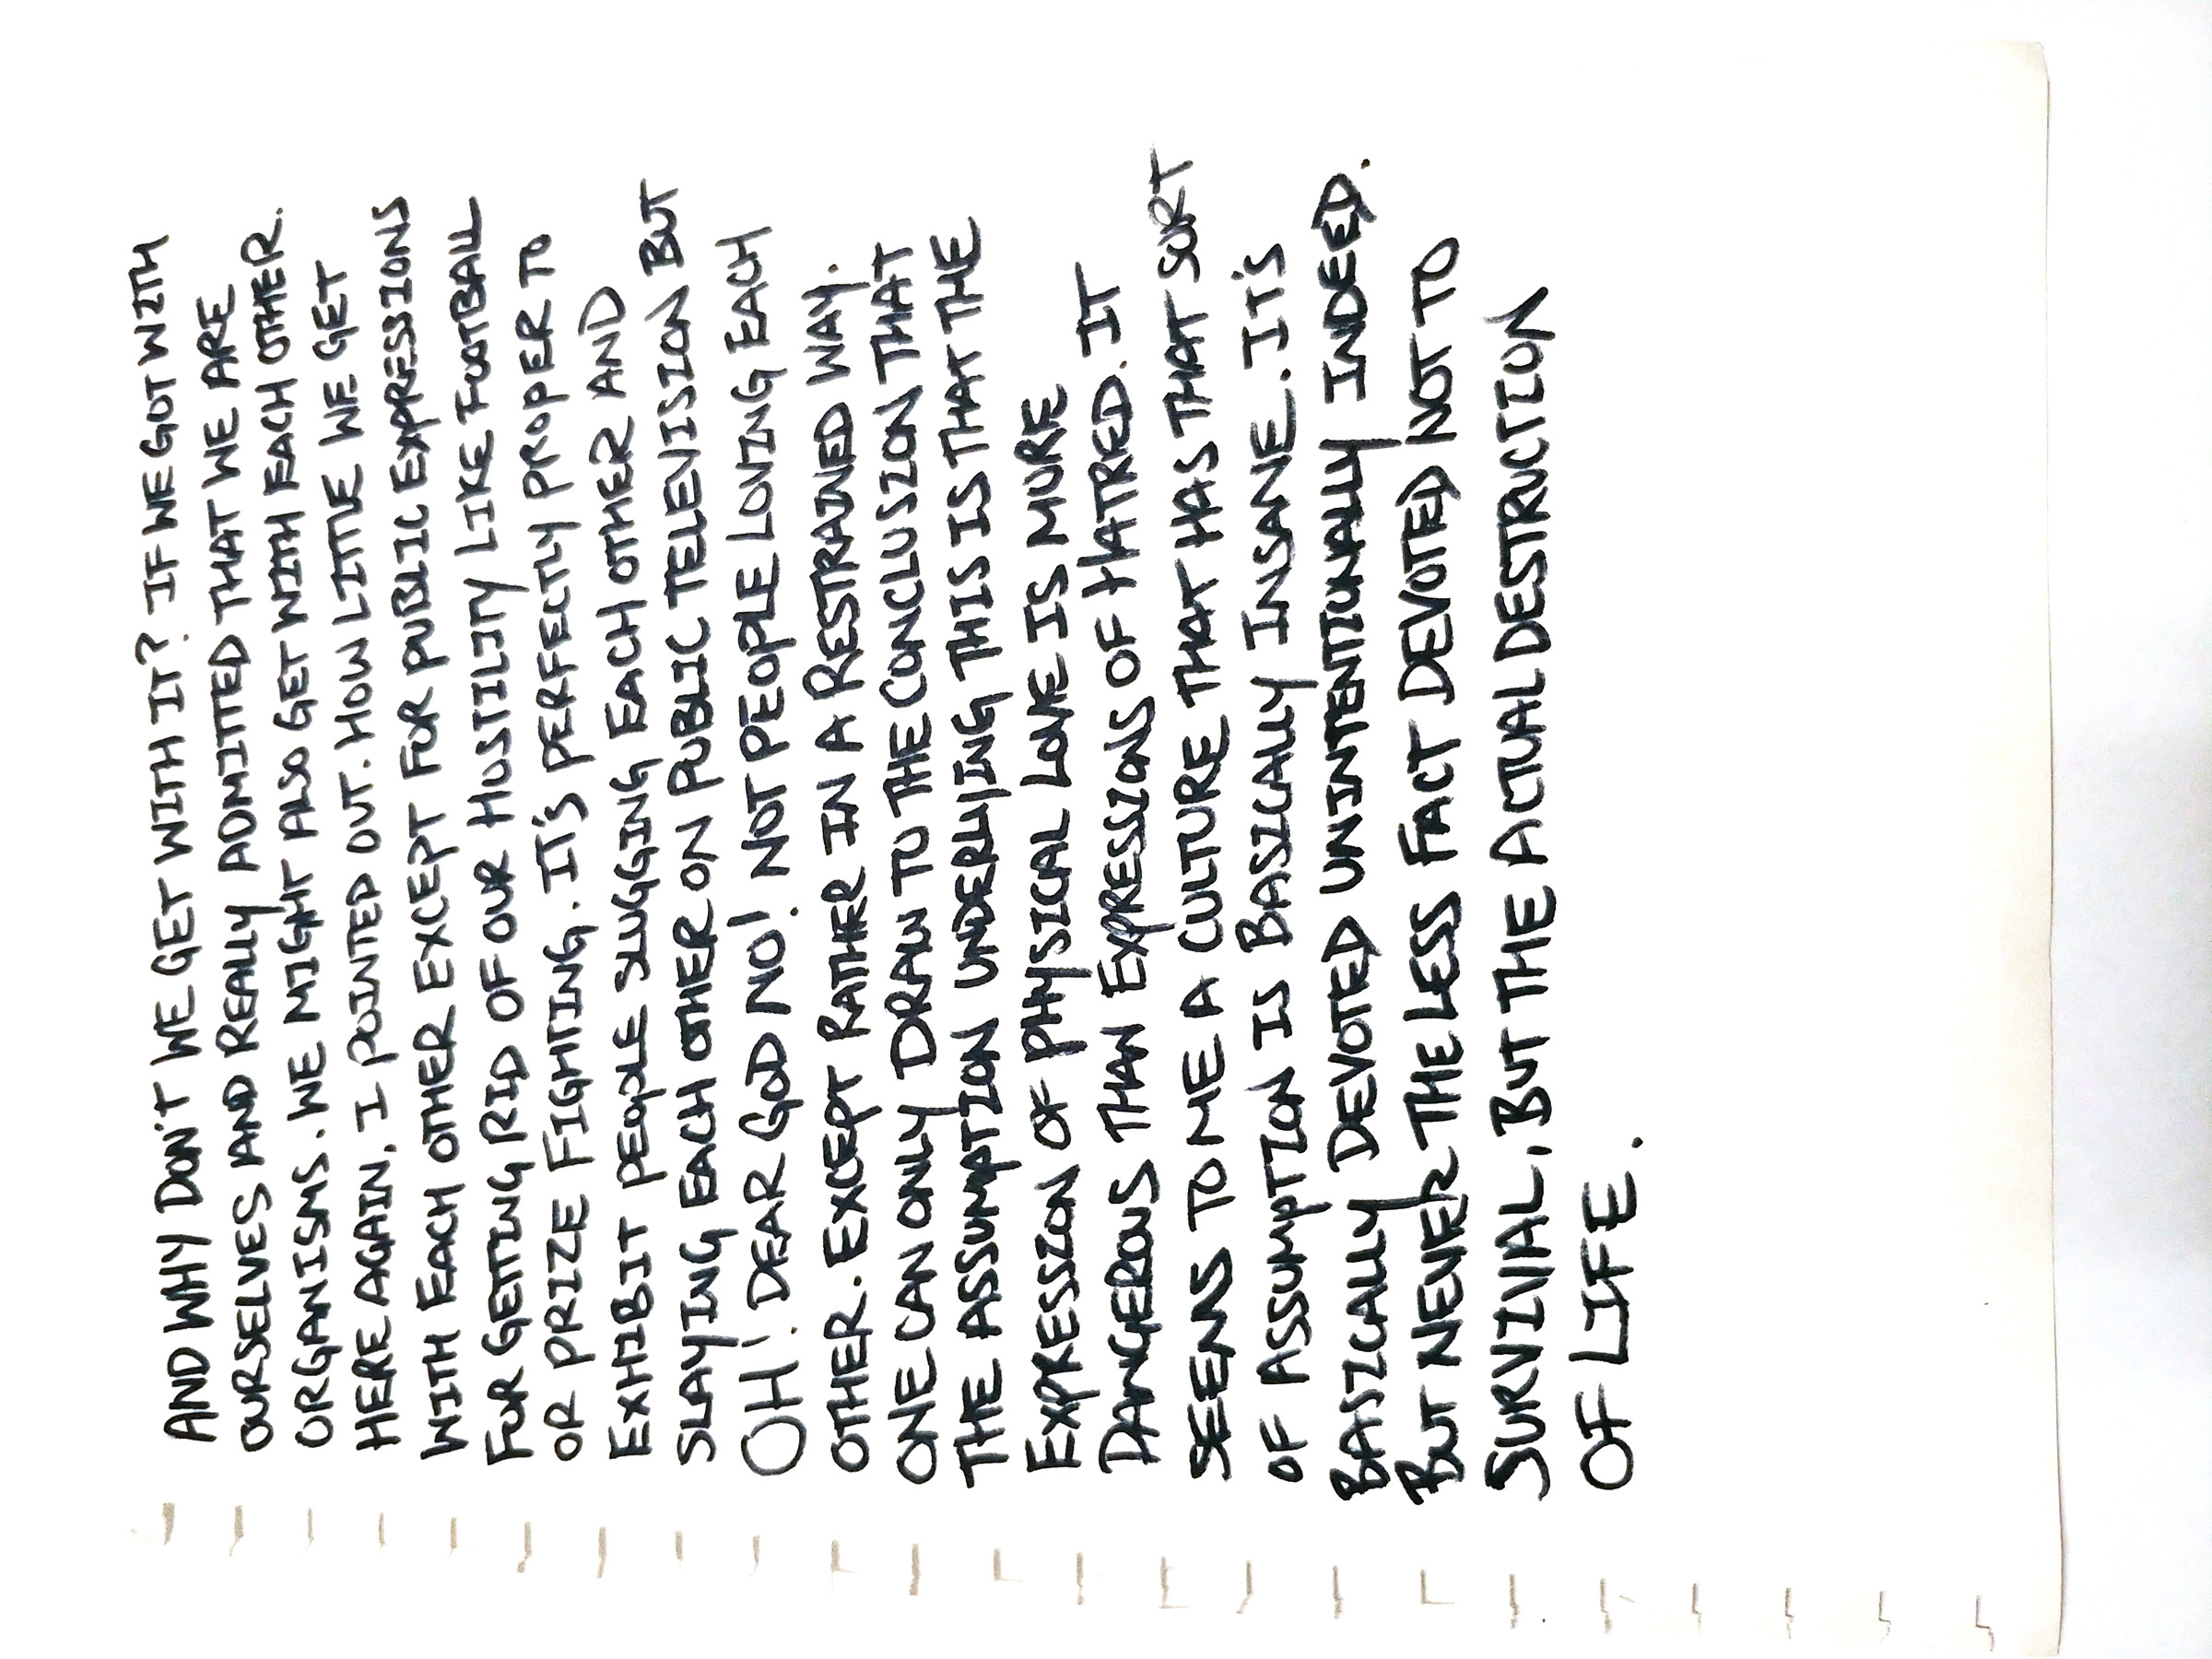 AND WHY DON'T WE GET WITH IT? IF WE GOT WITH
OURSELVES AND REALLY ADMITTED THAT WE ARE
ORGANISMS. WE MIGHT ALSO GET WITH EACH OTHER.
HERE AGAIN. I POINTED OUT. HOW LITTLE WE GET
WITH EACH OTHER EXCEPT FOR PUBLIC EXPRESSIONS
FOR GETTING RID OF OUR HOSTILITY LIKE FOOTBALL
OR PRIZE FIGHTING. IT'S PERFECTLY PROPER TO
EXHIBIT PEOPLE SLUGGING EACH OTHER AND
SLAYING EACH OTHER ON PUBLIC TELEVISION BUT
OH! DEAR GOD NO! NOT PEOPLE LOVING EACH
OTHER. EXCEPT RATHER IN A RESTRAINED WAY.
ONE CAN ONLY DRAW TO THE CONCLUSION THAT
THE ASSUMPTION UNDERLYING THIS IS THAT THE
EXPRESSION OF PHYSICAL LOVE IS MORE
DANGEROUS THAN EXPRESSIONS OF HATRED. IT
SEEMS TO ME A CULTURE THAT HAS THAT SORT
OF ASSUMPTION IS BASICALLY INSANE. IT'S
BASICALLY DEVOTED UNINTENTIONALLY INDEED.
BUT NEVER THE LESS FACT DEVOTED NOT TO
SURVIVAL, BUT THE ACTUAL DESTRUCTION
OF LIFE.